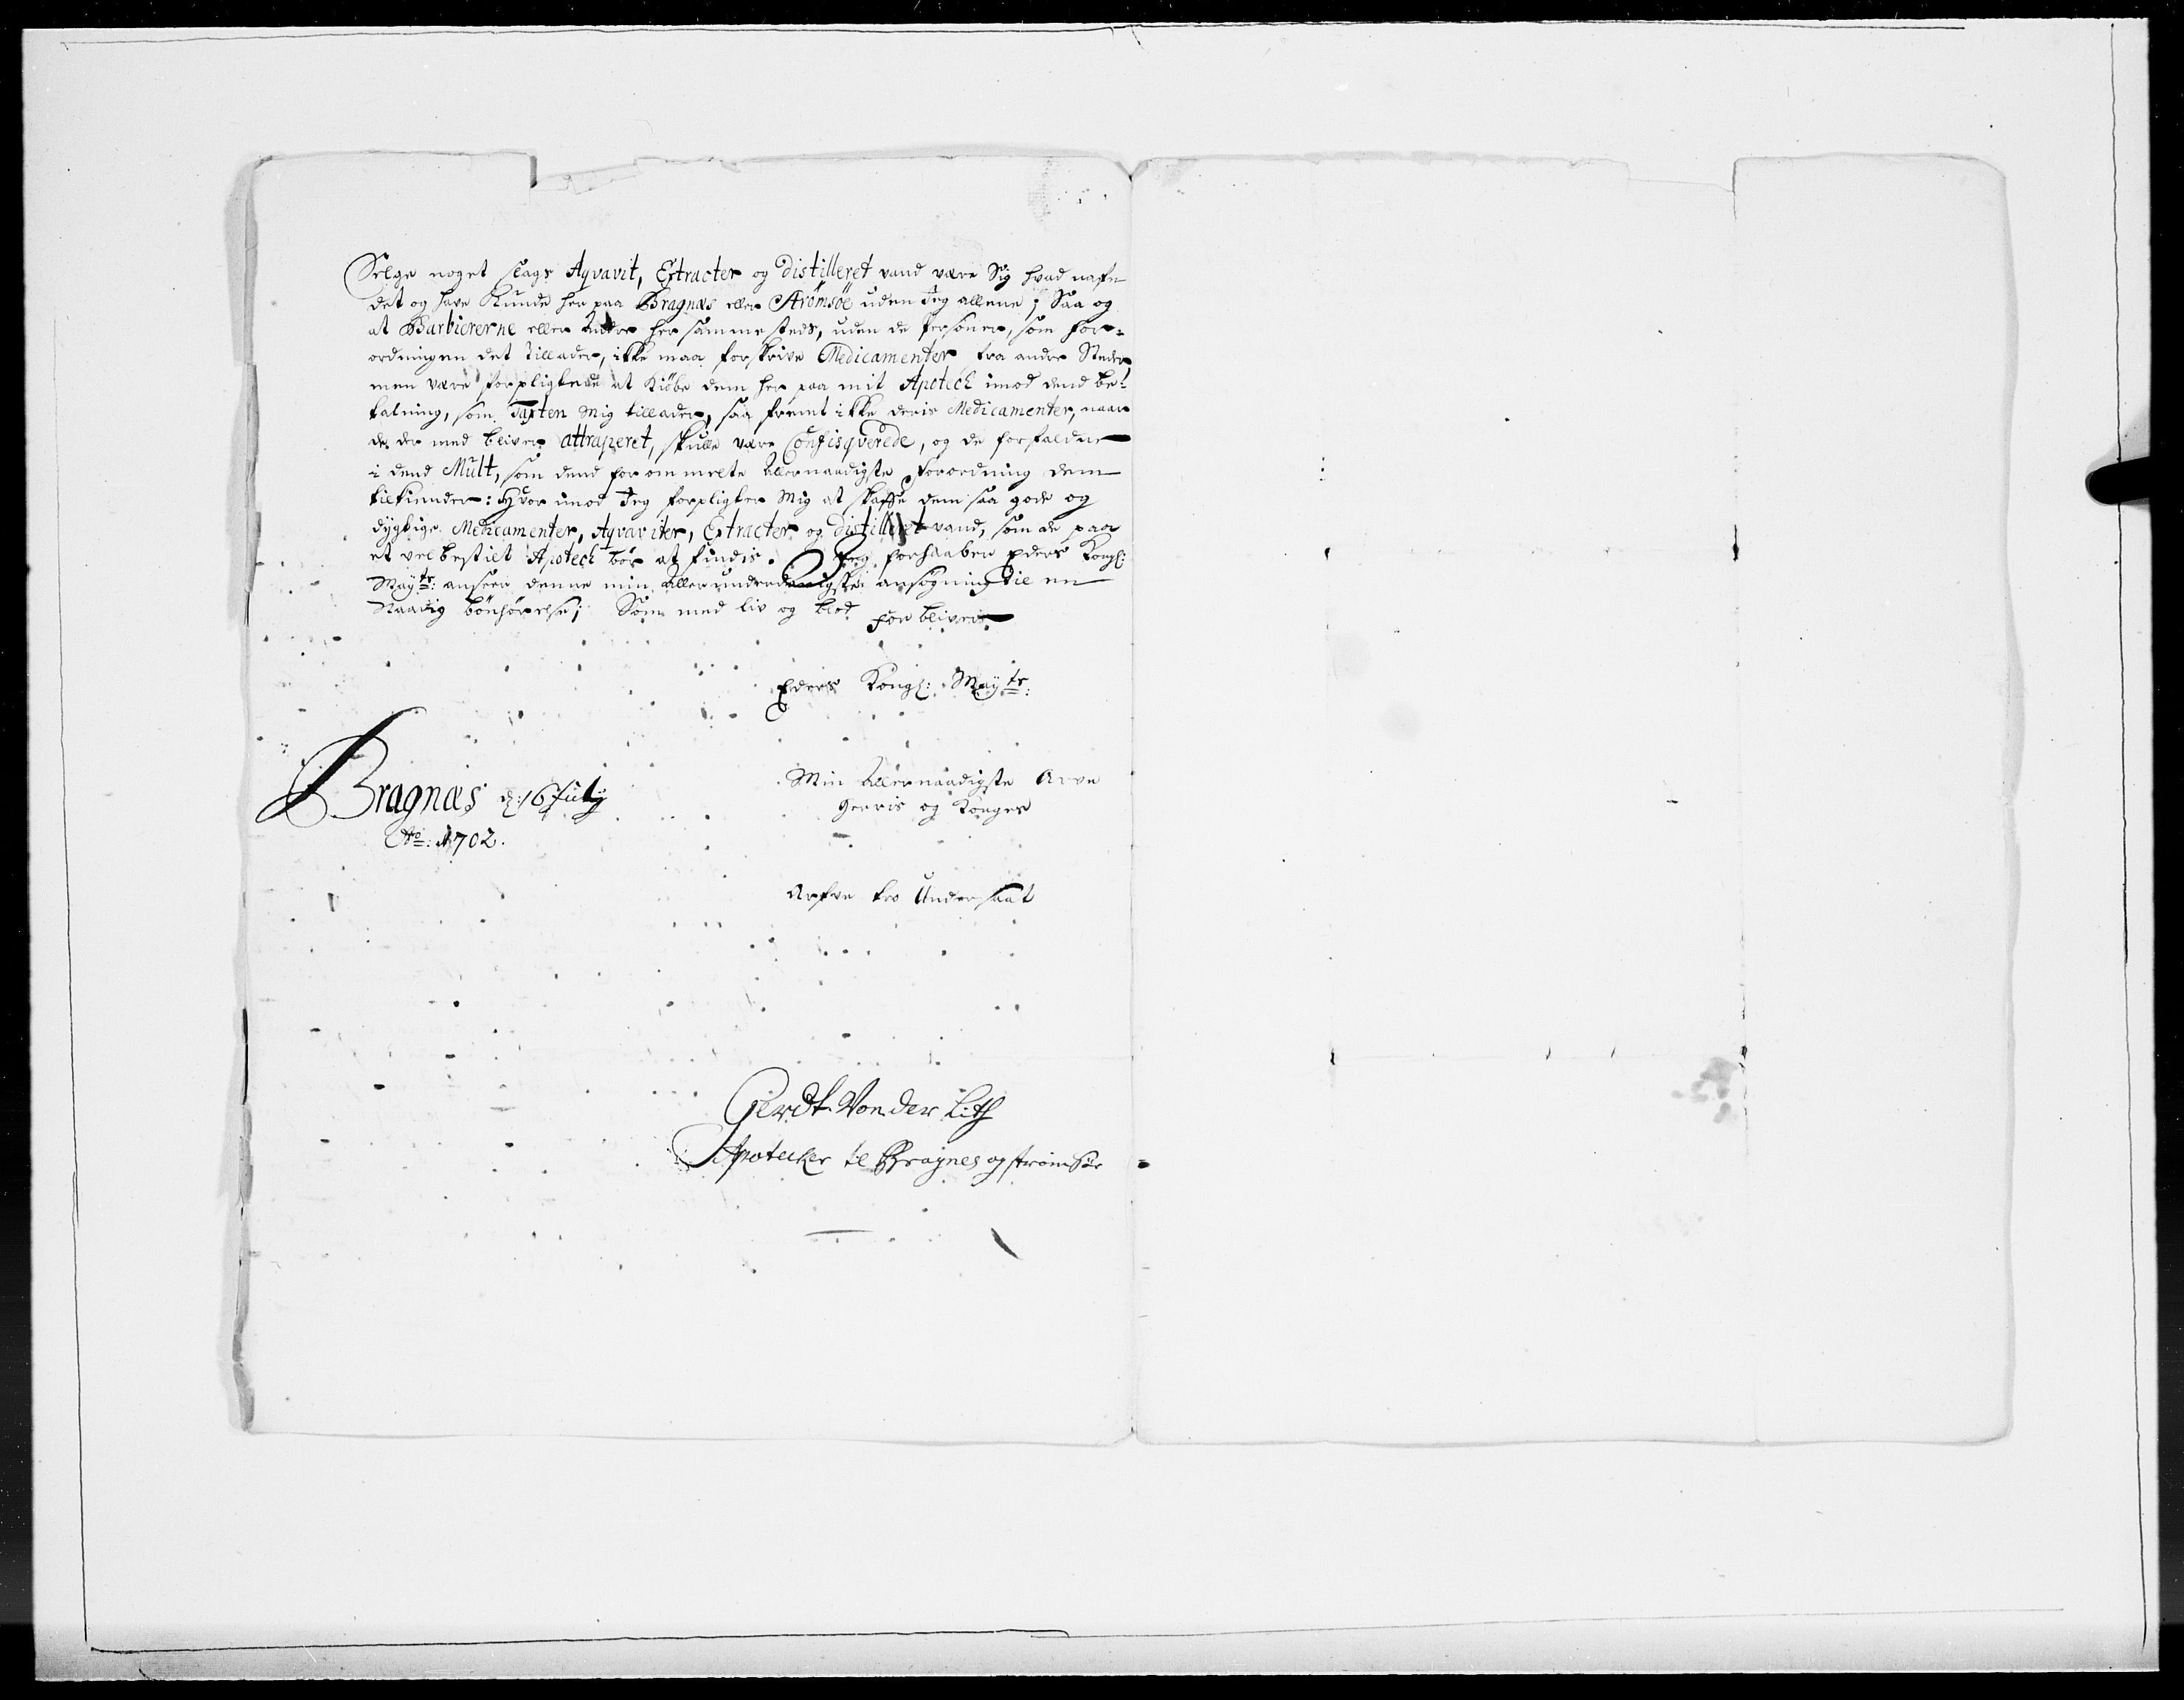 Selge noget slags Aqvavit, Extracter og Distilleret vand være Sig hvad nafn
det og have Kunde her paa Bragnæs eller Strömsöe uden Jeg allene; Saa og
at Barbiererne eller Andre her sammesteds, uden de Personer, som for-
ordningen det tillader, ikke maa forskrive Medicamenter fra andre Steder,
men være forpligtede at kiöbe dem her paa mit Apoteck imod dend be-
talning, som Taxten mig tillader, saa fremt ikke deris Medicamenter, naar
de der med bliver attraperet, skulle være Confisqverede, og de forfaldne
i dend Mult, som dend forommelte Allernaadigste forordning dem
tilkiender: Hvor imod Jeg forpligter mig at skaffe dem saa gode og
dygtige Medicamenter, Aqvaviter, Extracter og Distilleret vand, som de paa
et vel bestilt Apoteck bör at findis. Jeg forhaaber Eders Kongl:
Mayts: anseer denne min allerunderdanigste ansögning til en
Naadig bönhörelse; Som med liv og blod forbliver
Eders Kongl: Mayts:
Bragnæs d: 16 July
Ao: 1702.
Min Allernaadigste Arve
Herris og Konges
Arfve tro Undersaat
Gerdt Von der Lith
Apotecker til Bragnes og strömsöe